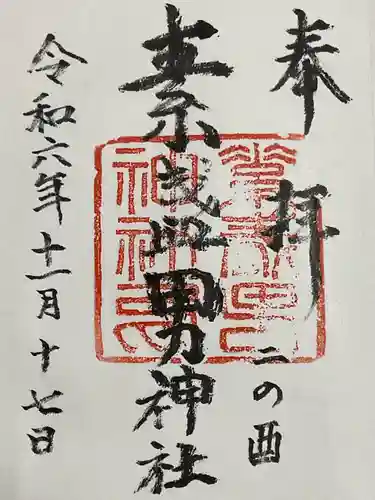 奉拝
二の酉
素戔嗚男神社
令和六年十一月十七日